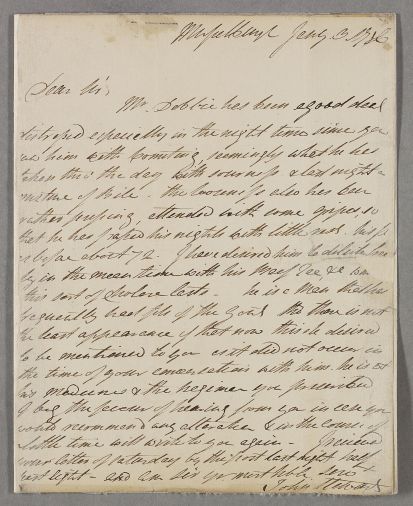 Musselburgh Jany 3 1786
Dear Sir,
Mr. Dobbie has been a good deal
distressed especially in the night time since you
saw him with vomiting, seemingly what he has
taken thro' the day with sourness & last night a
mixture of bile. The looseness also has been
rather purging, attended with some gripes, so
that he has passed his nights with little rest. his
is before about 72. I have desired him to dilute
in the mean time with his Tea &c
this sort of cholera lasts. he is a Man that has
frequently had fits of the Gout tho there is not
the least appearance of that now this he desired
to be mentioned to you as it did not occur in
the time of your conversation with him. he is
his medicines & the regimen you prescribed
I beg the favour of hearing from you in case you
would recommend any alteration & in the course of
little time will write to you again. I received
your letter of Saturday by the post last night half
past eight - and am Sir your most
John Stewart